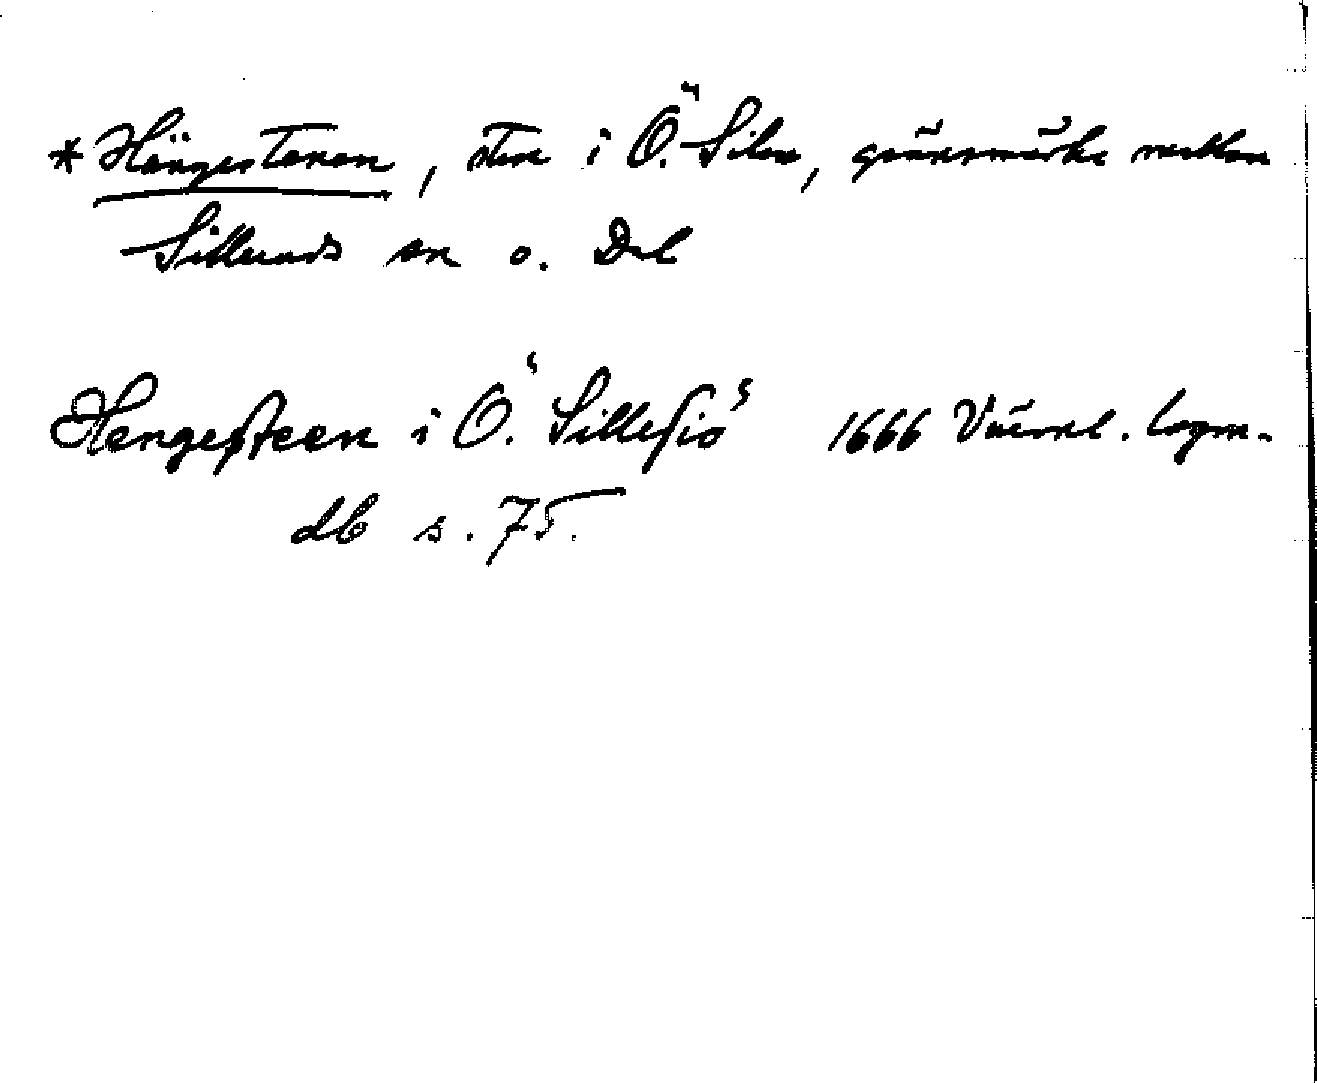 * Hängestenen, sten i Ö. Silen, gränsmärke mellan
Silleruds sn o. Dal
Hengesteen i Ö. Sillesiö 1666 Värml. lagm.
db s. 75.